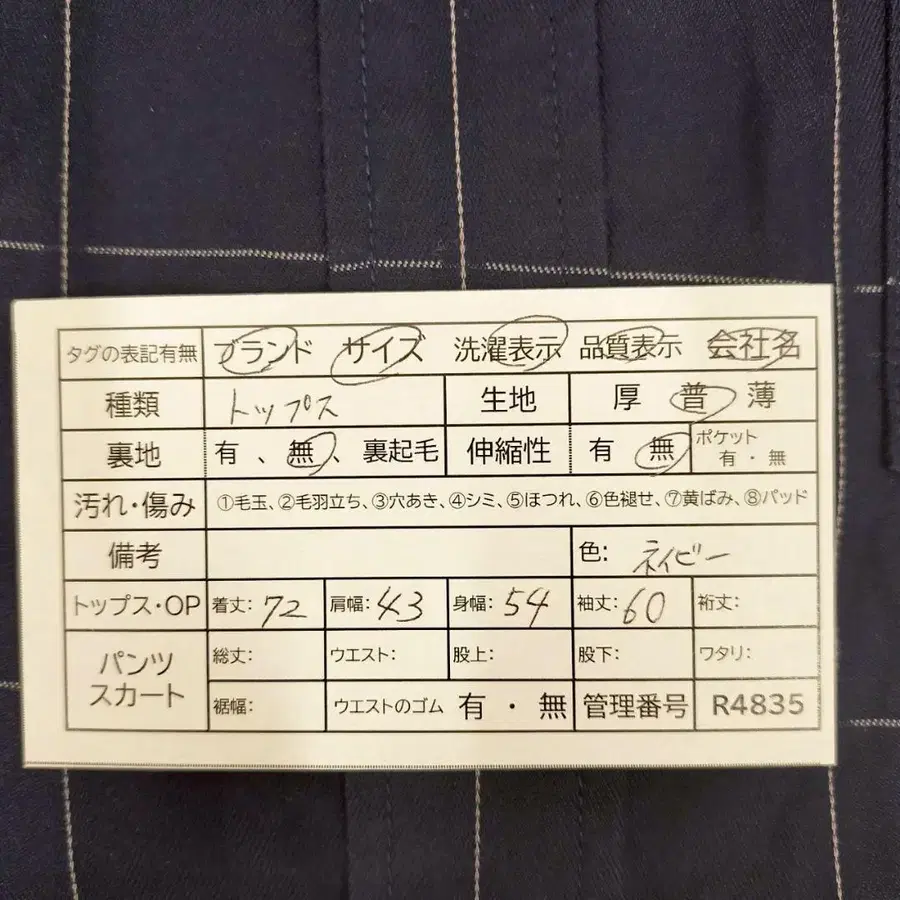 タグの表記有無 ブランド サイズ 洗濯表示 品質表示 会社名
種類 トップス 生地 厚 普 薄
裏地 有 、 無 、 裏起毛 伸縮性 有 無 ポケット 有 ・ 無
汚れ・傷み ①毛玉、②毛羽立ち、③穴あき、④シミ、⑤ほつれ、⑥色褪せ、⑦黄ばみ、⑧パッド
備考 色: ネイビー
トップス・OP 着丈: 72 肩幅: 43 身幅: 54 袖丈: 60 裄丈:
パンツ スカート 総丈: ウエスト: 股上: 股下: ワタリ:
裾幅: ウエストのゴム 有 ・ 無 管理番号 R4835